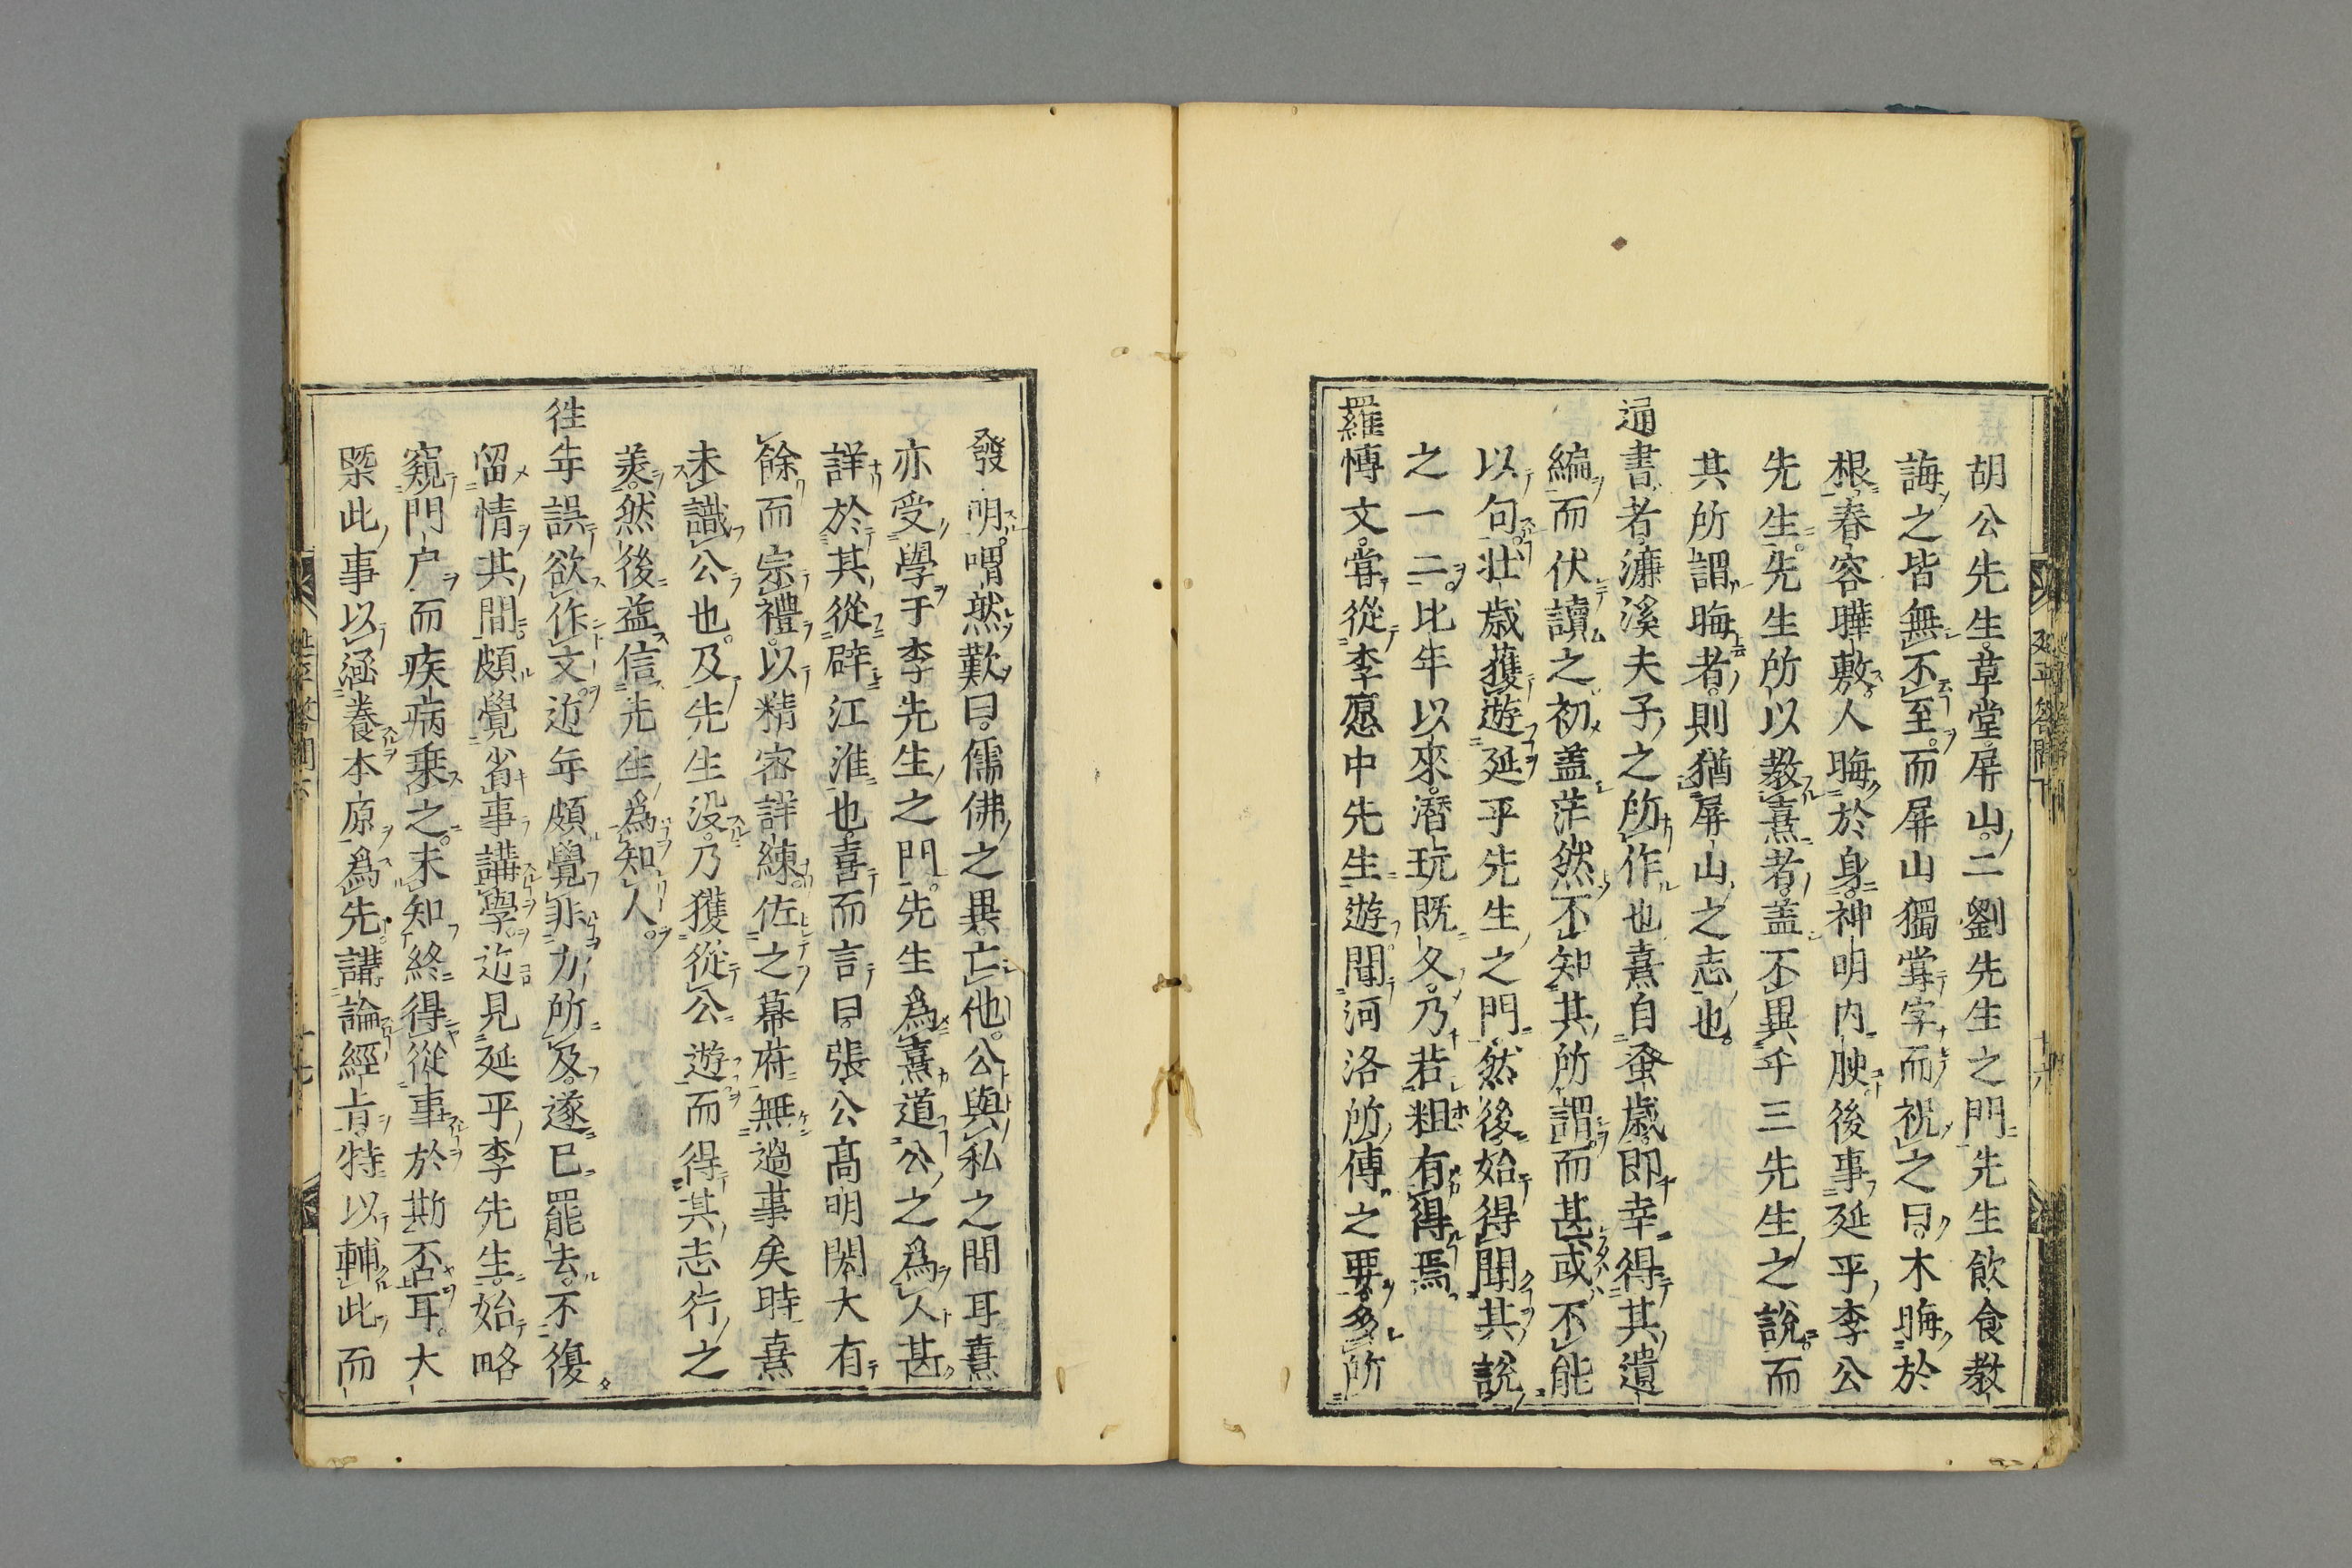 胡公先生草堂屏山二劉先生之門先生飲食教
誨之皆無不至而屏山獨嘗字而祝之曰木晦於
根春容曄敷人晦於身神明内腴後事延平李公
先生先生所以教熹者盖不異乎三先生之說而
其所謂晦者則猶屏山之志也
通書者濂溪夫子之所作也熹自蚤歳即幸得其遺
編而伏讀之初盖茫然不知其所謂而甚或不能
以句壮歳獲遊延平先生之門然後始得聞其說
之一二比年以來潛玩既久乃若粗有得焉
羅慱文嘗從李愿中先生遊聞河洛所傳之要多所
延平答問下
發明喟然歎曰儒佛之異亡他公與私之間耳熹
亦受學于李先生之門先生爲熹道公之爲人甚
詳於其從辟江淮也喜而言曰張公高明閎大有
餘而宗禮以精密詳練佐之幕府無過事矣時熹
未識公也及先生没乃獲從公遊而得其志行之
美然後益信先生爲知人
徃年誤欲作文近年頗覺非力所及遂已罷去不復
留情其間頗覺省事講學近見延平李先生始略
窺門户而疾病乗之未知終得從事於斯否耳大
槩此事以涵養本原爲先講論經旨特以輔此而